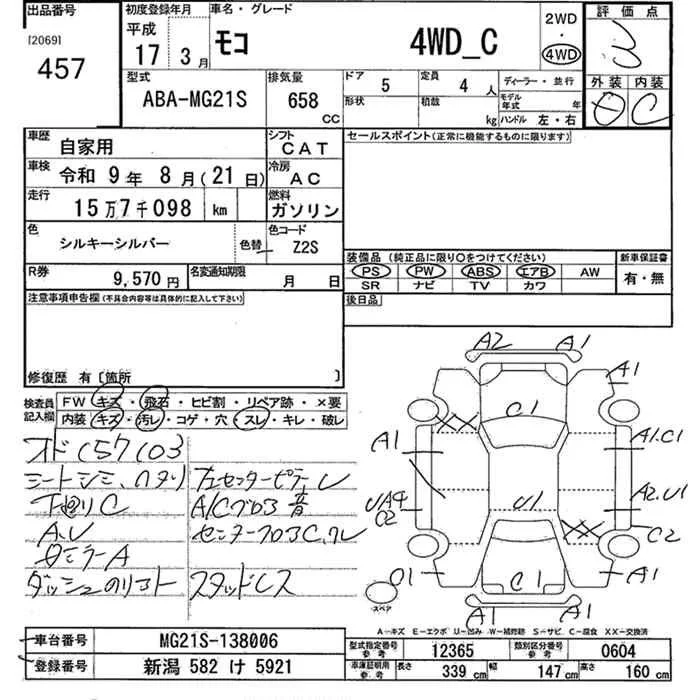 出品番号
[2069]
457
初度登録年月
平成
17年 3月
車名・グレード
モコ
4WD_C
2WD
・
4WD
評価点
3
型式
ABA-MG21S
排気量
658
CC
ドア
5
定員
4人
形状
積載
kg
ディーラー・並行
モデル年式
年
ハンドル 左・右
外装
内装
C
車歴
自家用
シフト
CAT
車検
令和 9年 8月(21日)
冷房
AC
走行
15万7千098 km
燃料
ガソリン
色
シルキーシルバー
色替
色コード
Z2S
R券
9,570円
名変通知期限
月 日
セールスポイント(正常に機能するものに限ります)
装備品(純正品に限り○をつけてください)
PS PW ABS エアB AW
SR ナビ TV カワ
新車保証書
有・無
後日品
注意事項申告欄(不具合内容等は具体的に記入して下さい)
修復歴 有〔箇所 〕
検査員記入欄
FW キズ・飛石・ヒビ割・リペア跡・×要
内装 キズ・汚レ・コゲ・穴・スレ・キレ・破レ
シートシミ、ヘタリ
下廻りC
A.U
ミラーA
スタッドレス
A2 A1
A1
C1
A1
A1.C1
U1
A2.U1
C2
C1
A1
A1 A1
スペア
A－キズ E－エクボ U－凹み W－補修跡 S－サビ C－腐食 XX－交換済
車台番号
MG21S-138006
登録番号
新潟 582 け 5921
型式指定番号
参考
12365
類別区分番号
参考
0604
車庫証明用
参考
長さ 339 cm 幅 147 cm 高さ 160 cm